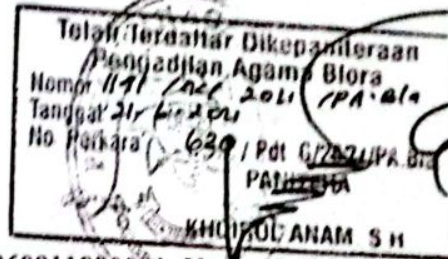 Telah Terdaftar Dikepaniteraan
Pengadilan Agama Blora
Nomor 1141 2021 /PA.Bla
Tanggal 21, 6 - 2021
No Perkara 630 / Pdt G/2021/PA.Bla
PANITERA
KHOIRUL ANAM S H